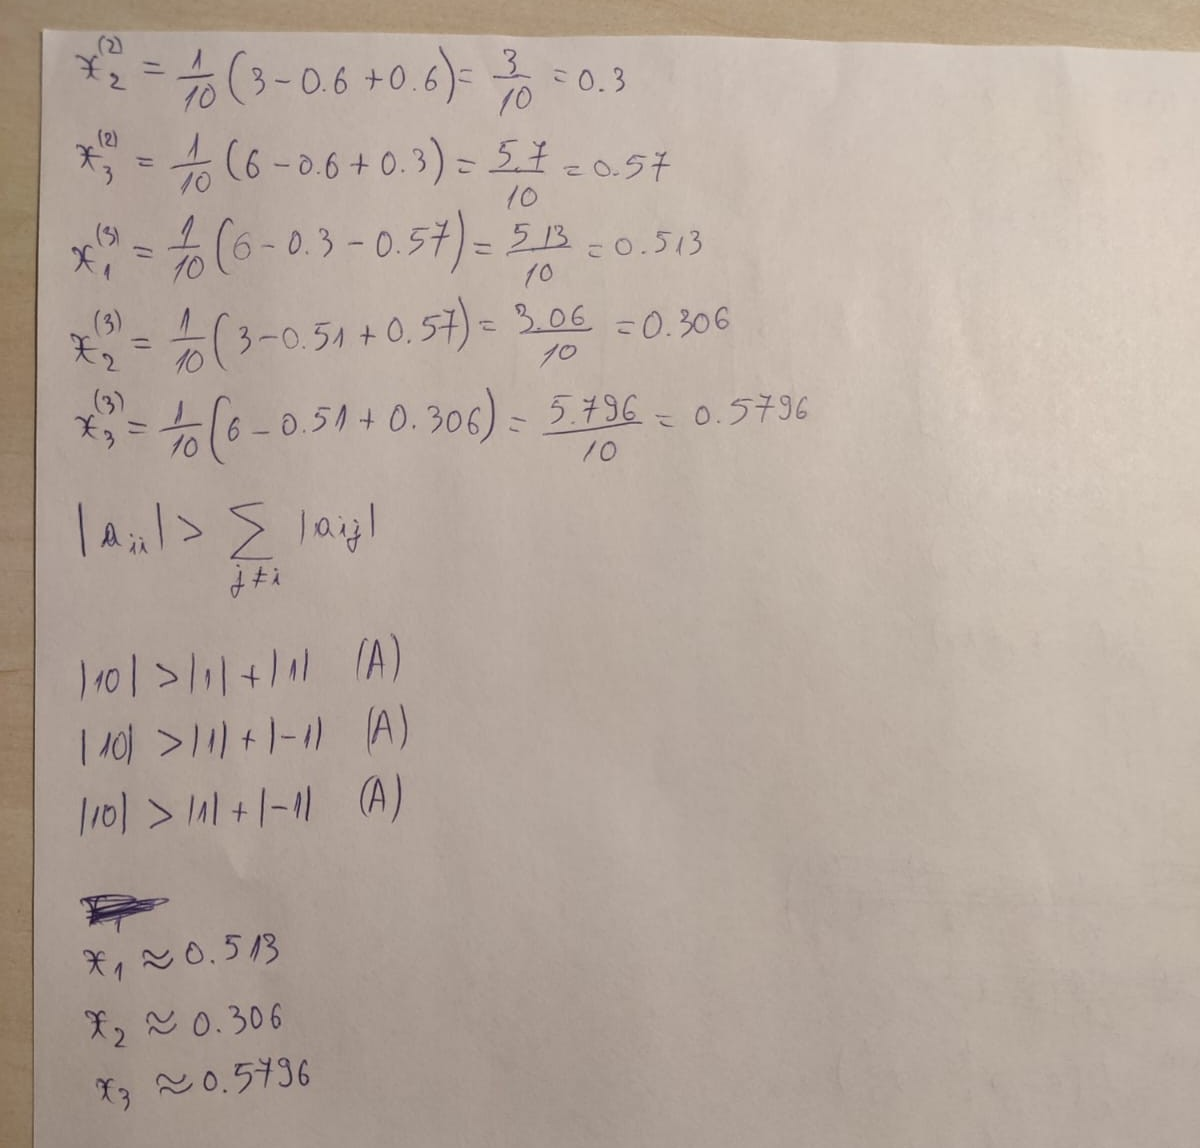 x₂⁽²⁾ = 1/10 (3 - 0.6 + 0.6) = 3/10 = 0.3
x₃⁽²⁾ = 1/10 (6 - 0.6 + 0.3) = 5.7/10 = 0.57
x₁⁽³⁾ = 1/10 (6 - 0.3 - 0.57) = 5.13/10 = 0.513
x₂⁽³⁾ = 1/10 (3 - 0.51 + 0.57) = 3.06/10 = 0.306
x₃⁽³⁾ = 1/10 (6 - 0.51 + 0.306) = 5.796/10 = 0.5796
|aᵢᵢ| > ∑_{j≠i} |aᵢⱼ|
|10| > |1| + |1| (A)
|10| > |1| + |-1| (A)
|10| > |1| + |-1| (A)
x₁ ≈ 0.513
x₂ ≈ 0.306
x₃ ≈ 0.5796